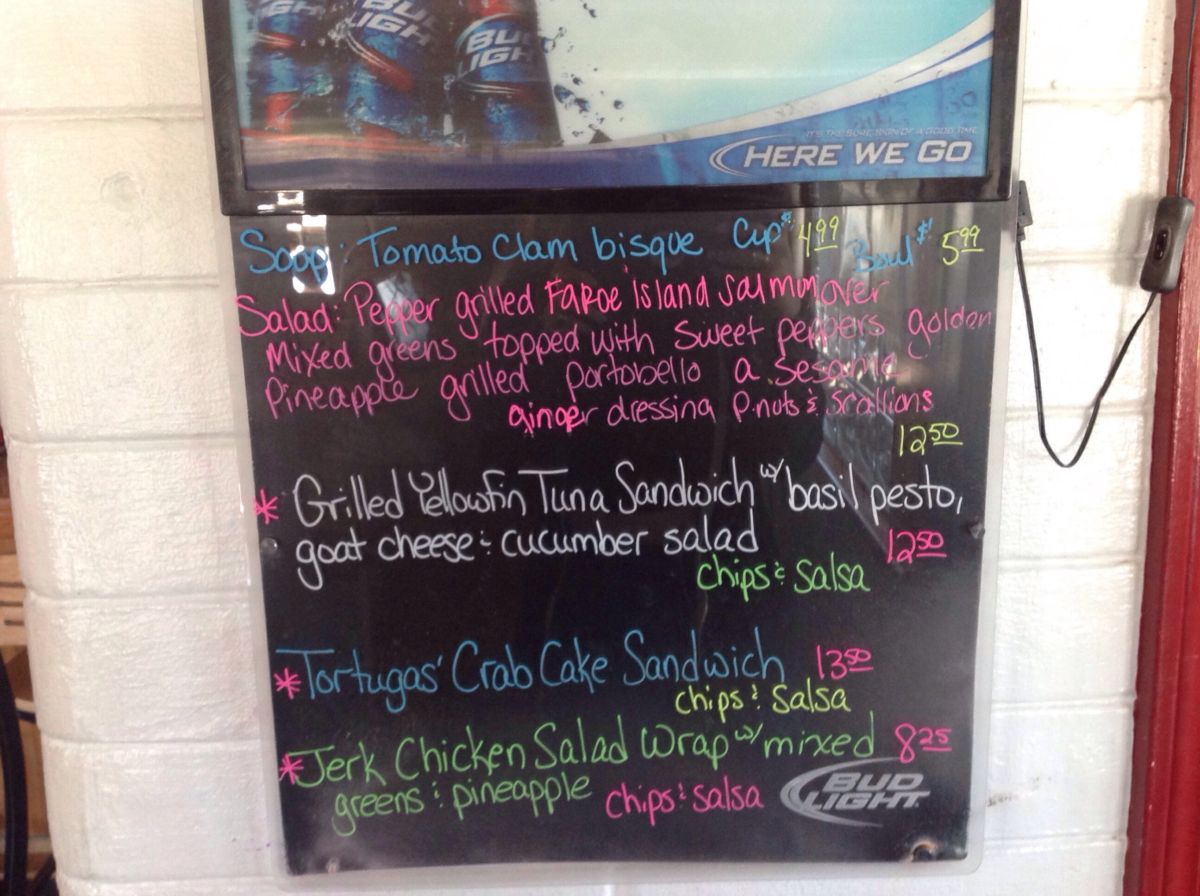 BUD LIGHT
BUD LIGHT
IT'S THE SURE SIGN OF A GOOD TIME
HERE WE GO
Soup: Tomato Clam bisque Cup $4.99 Bowl $5.99
Salad: Pepper grilled Faroe Island salmon over
Mixed greens topped with Sweet peppers golden
Pineapple grilled portobello a sesame
ginger dressing P.nuts & Scallions
12.50
* Grilled Yellowfin Tuna Sandwich w/ basil pesto,
goat cheese & cucumber salad 12.50
chips & salsa
* Tortugas' Crab Cake Sandwich 13.50
chips & salsa
* Jerk Chicken Salad Wrap w/ mixed 8.25
greens & pineapple chips & salsa
BUD LIGHT